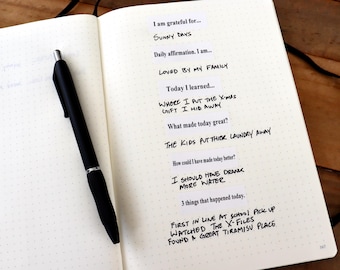 I am grateful for...
SUNNY DAYS
Daily affirmation. I am...
LOVED BY MY FAMILY
Today I learned...
WHERE I PUT THE X-MAS
GIFT I HID AWAY
What made today great?
THE KIDS PUT THIER LAUNDRY AWAY
How could I have made today better?
I SHOULD HAVE DRANK
MORE WATER
3 things that happened today.
FIRST IN LINE AT SCHOOL PICK UP
WATCHED THE X-FILES
FOUND A GREAT TIRAMISU PLACE